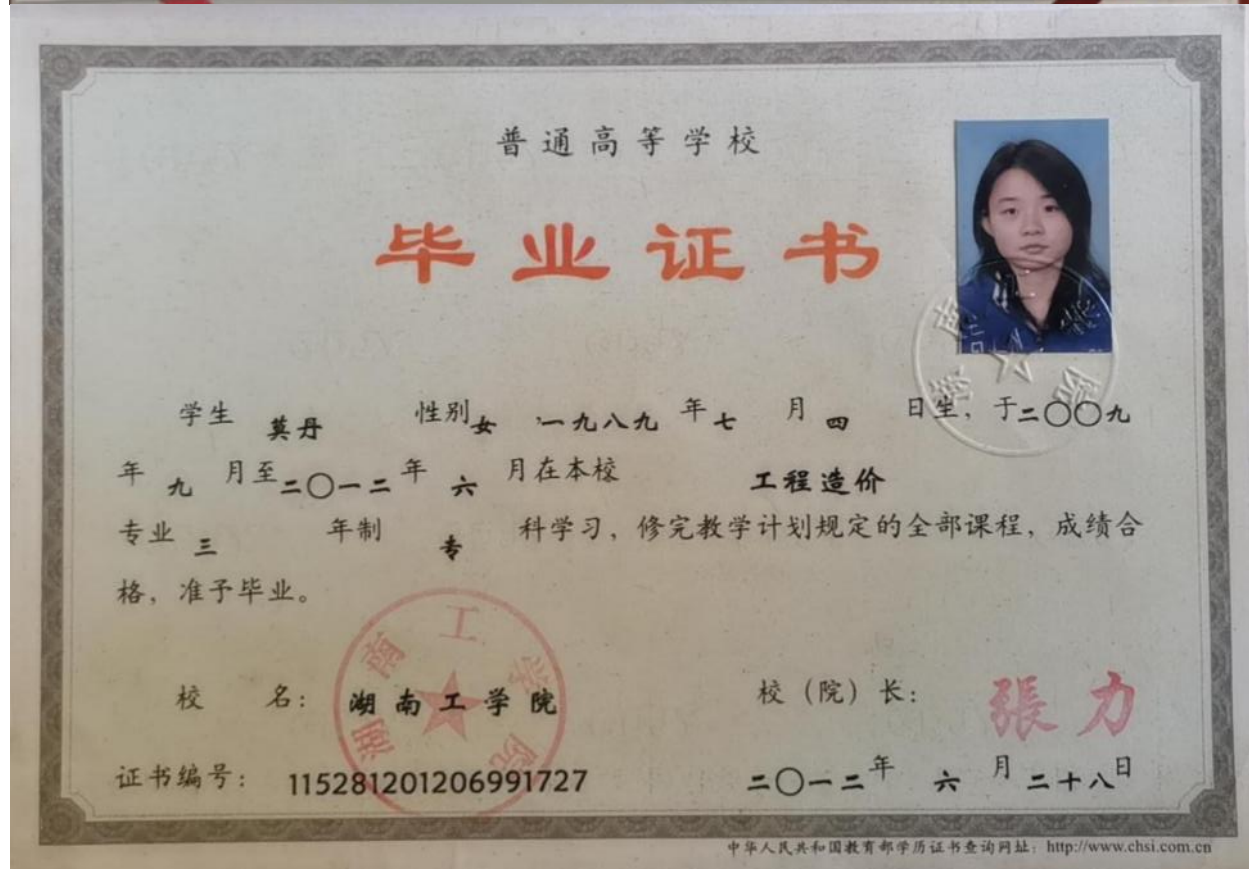 普通高等学校
毕业证书
学生 莫丹 性别 女 , 一九八九 年 七 月 四 日生, 于二〇〇九
年 九 月至 二〇一二 年 六 月在本校 工程造价
专业 三 年制 专 科学习, 修完教学计划规定的全部课程, 成绩合
格, 准予毕业。
校 名: 湖南工学院 校（院）长: 張力
湖南工学院
证书编号: 115281201206991727 二〇一二 年 六 月 二十八 日
中华人民共和国教育部学历证书查询网址: http://www.chsi.com.cn